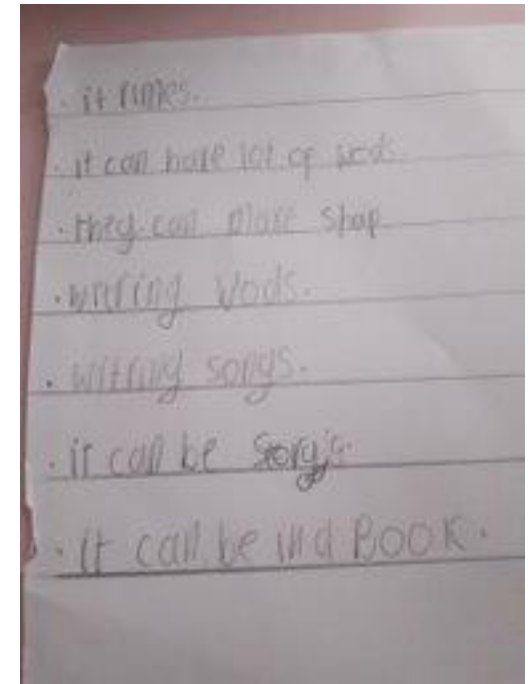 · it rimes.
· it can have lot of wods.
· they can make shap
· writing wods.
· writing songs.
· it can be
· it can be in a BOOK.